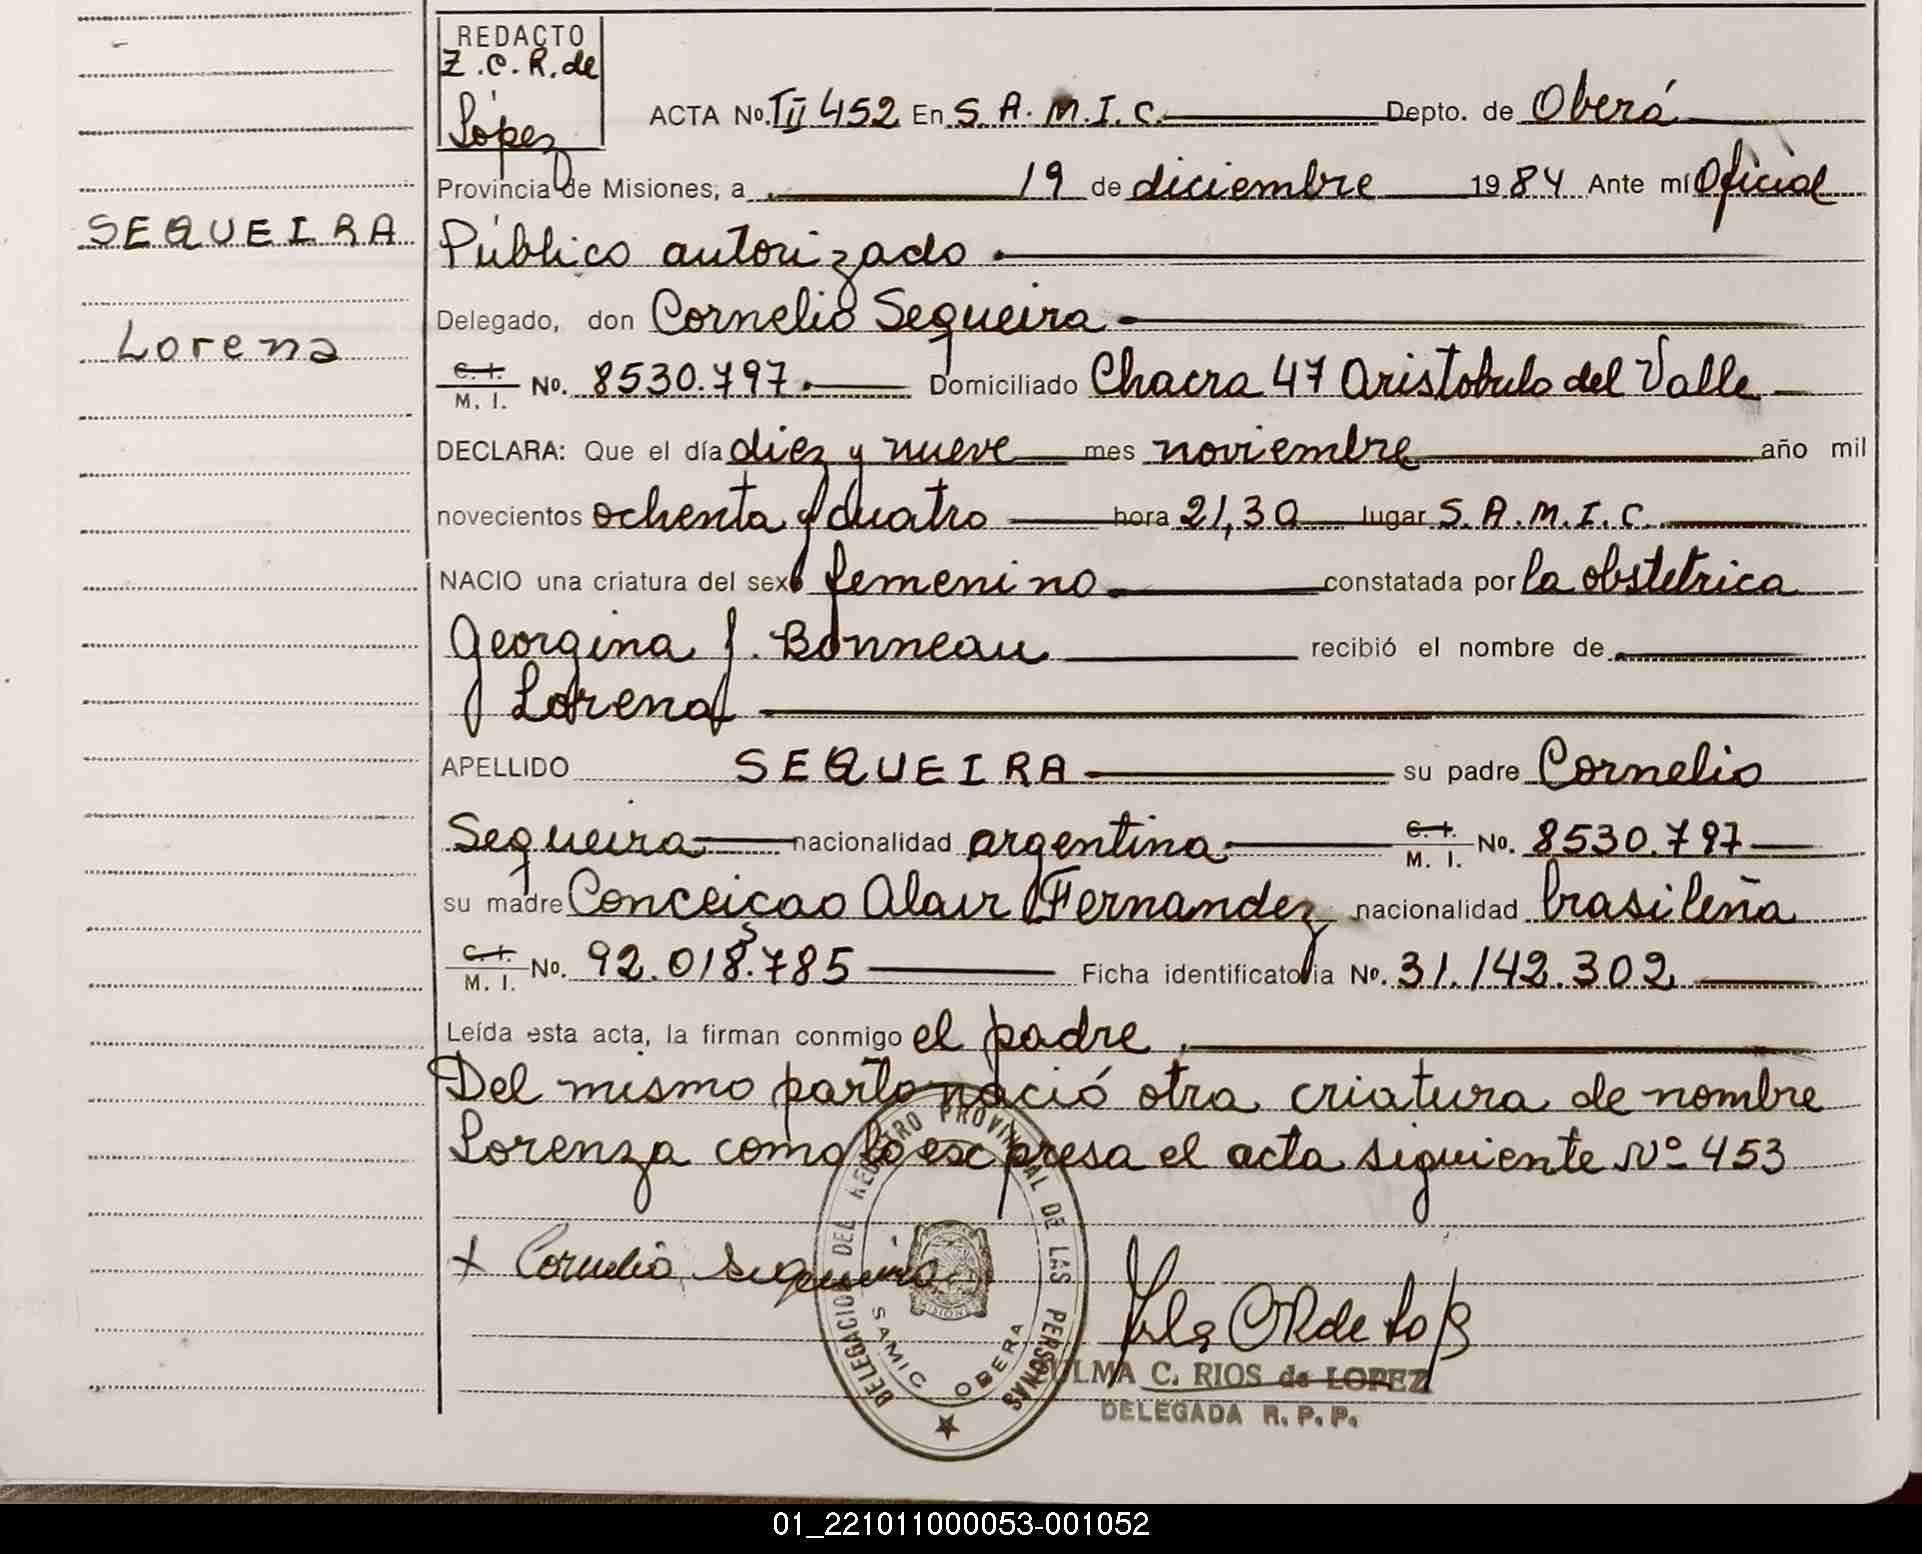 REDACTO
Z.C.R. de
López
ACTA No. III 452 En S. A. M. I. C. Depto. de Oberá
Provincia de Misiones, a 19 de diciembre 1984 Ante mí Oficial
SEQUEIRA
Público autorizado
Delegado, don Cornelio Sequeira
Lorena
C. I. M. I. No. 8530.797. Domiciliado Chacra 47 Aristobulo del Valle
DECLARA: Que el día diez y nueve mes noviembre año mil
novecientos ochenta y cuatro hora 21,30 lugar S. A. M. I. C.
NACIO una criatura del sexo femenino constatada por la obstetrica
Georgina J. Bonneau recibió el nombre de
Lorena
APELLIDO SEQUEIRA su padre Cornelio
Sequeira nacionalidad argentina C. I. M. I. No. 8530.797
su madre Conceicao Alair Fernandez nacionalidad brasileña
C. I. M. I. No. 92.018.785 Ficha identificatoria No. 31.142.302
Leída esta acta, la firman conmigo el padre.
Del mismo parto nació otra criatura de nombre
Lorenza como lo expresa el acta siguiente Nº 453
x Cornelio Sequeira
DELEGACION DEL REGISTRO PROVINCIAL DE LAS PERSONAS
SAMIC OBERA
MISIONES
ZULMA C. RIOS de LOPEZ
DELEGADA R. P. P.
01_221011000053-001052